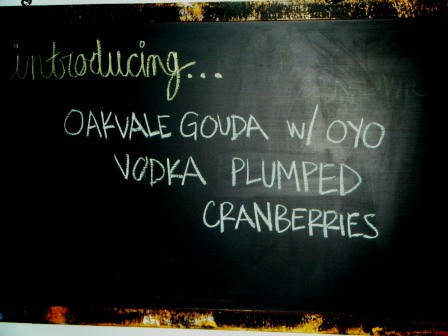 introducing...
OAKVALE GOUDA W/ OYO
VODKA PLUMPED
CRANBERRIES